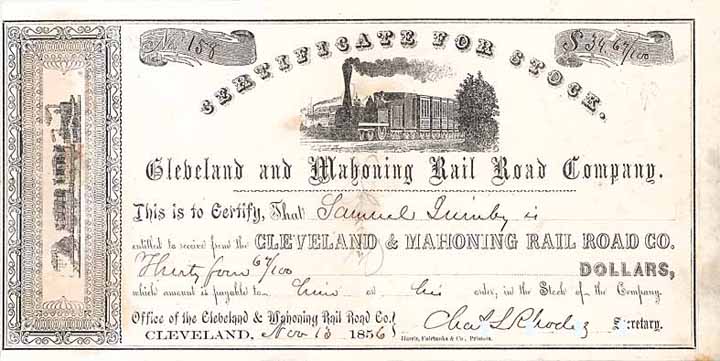 No. 158
$ 34.67/100
CERTIFICATE FOR STOCK.
Cleveland and Mahoning Rail Road Company.
This is to Certify, That Samuel Quinby is
entitled to receive from the CLEVELAND & MAHONING RAIL ROAD CO.
Thirty four 67/100 DOLLARS,
which amount is payable to him or his order, in the Stock of the Company.
Office of the Cleveland & Mahoning Rail Road Co.
CLEVELAND, Nov 13 1856
Chas L Rhodes Secretary.
Harris, Fairbanks & Co., Printers.